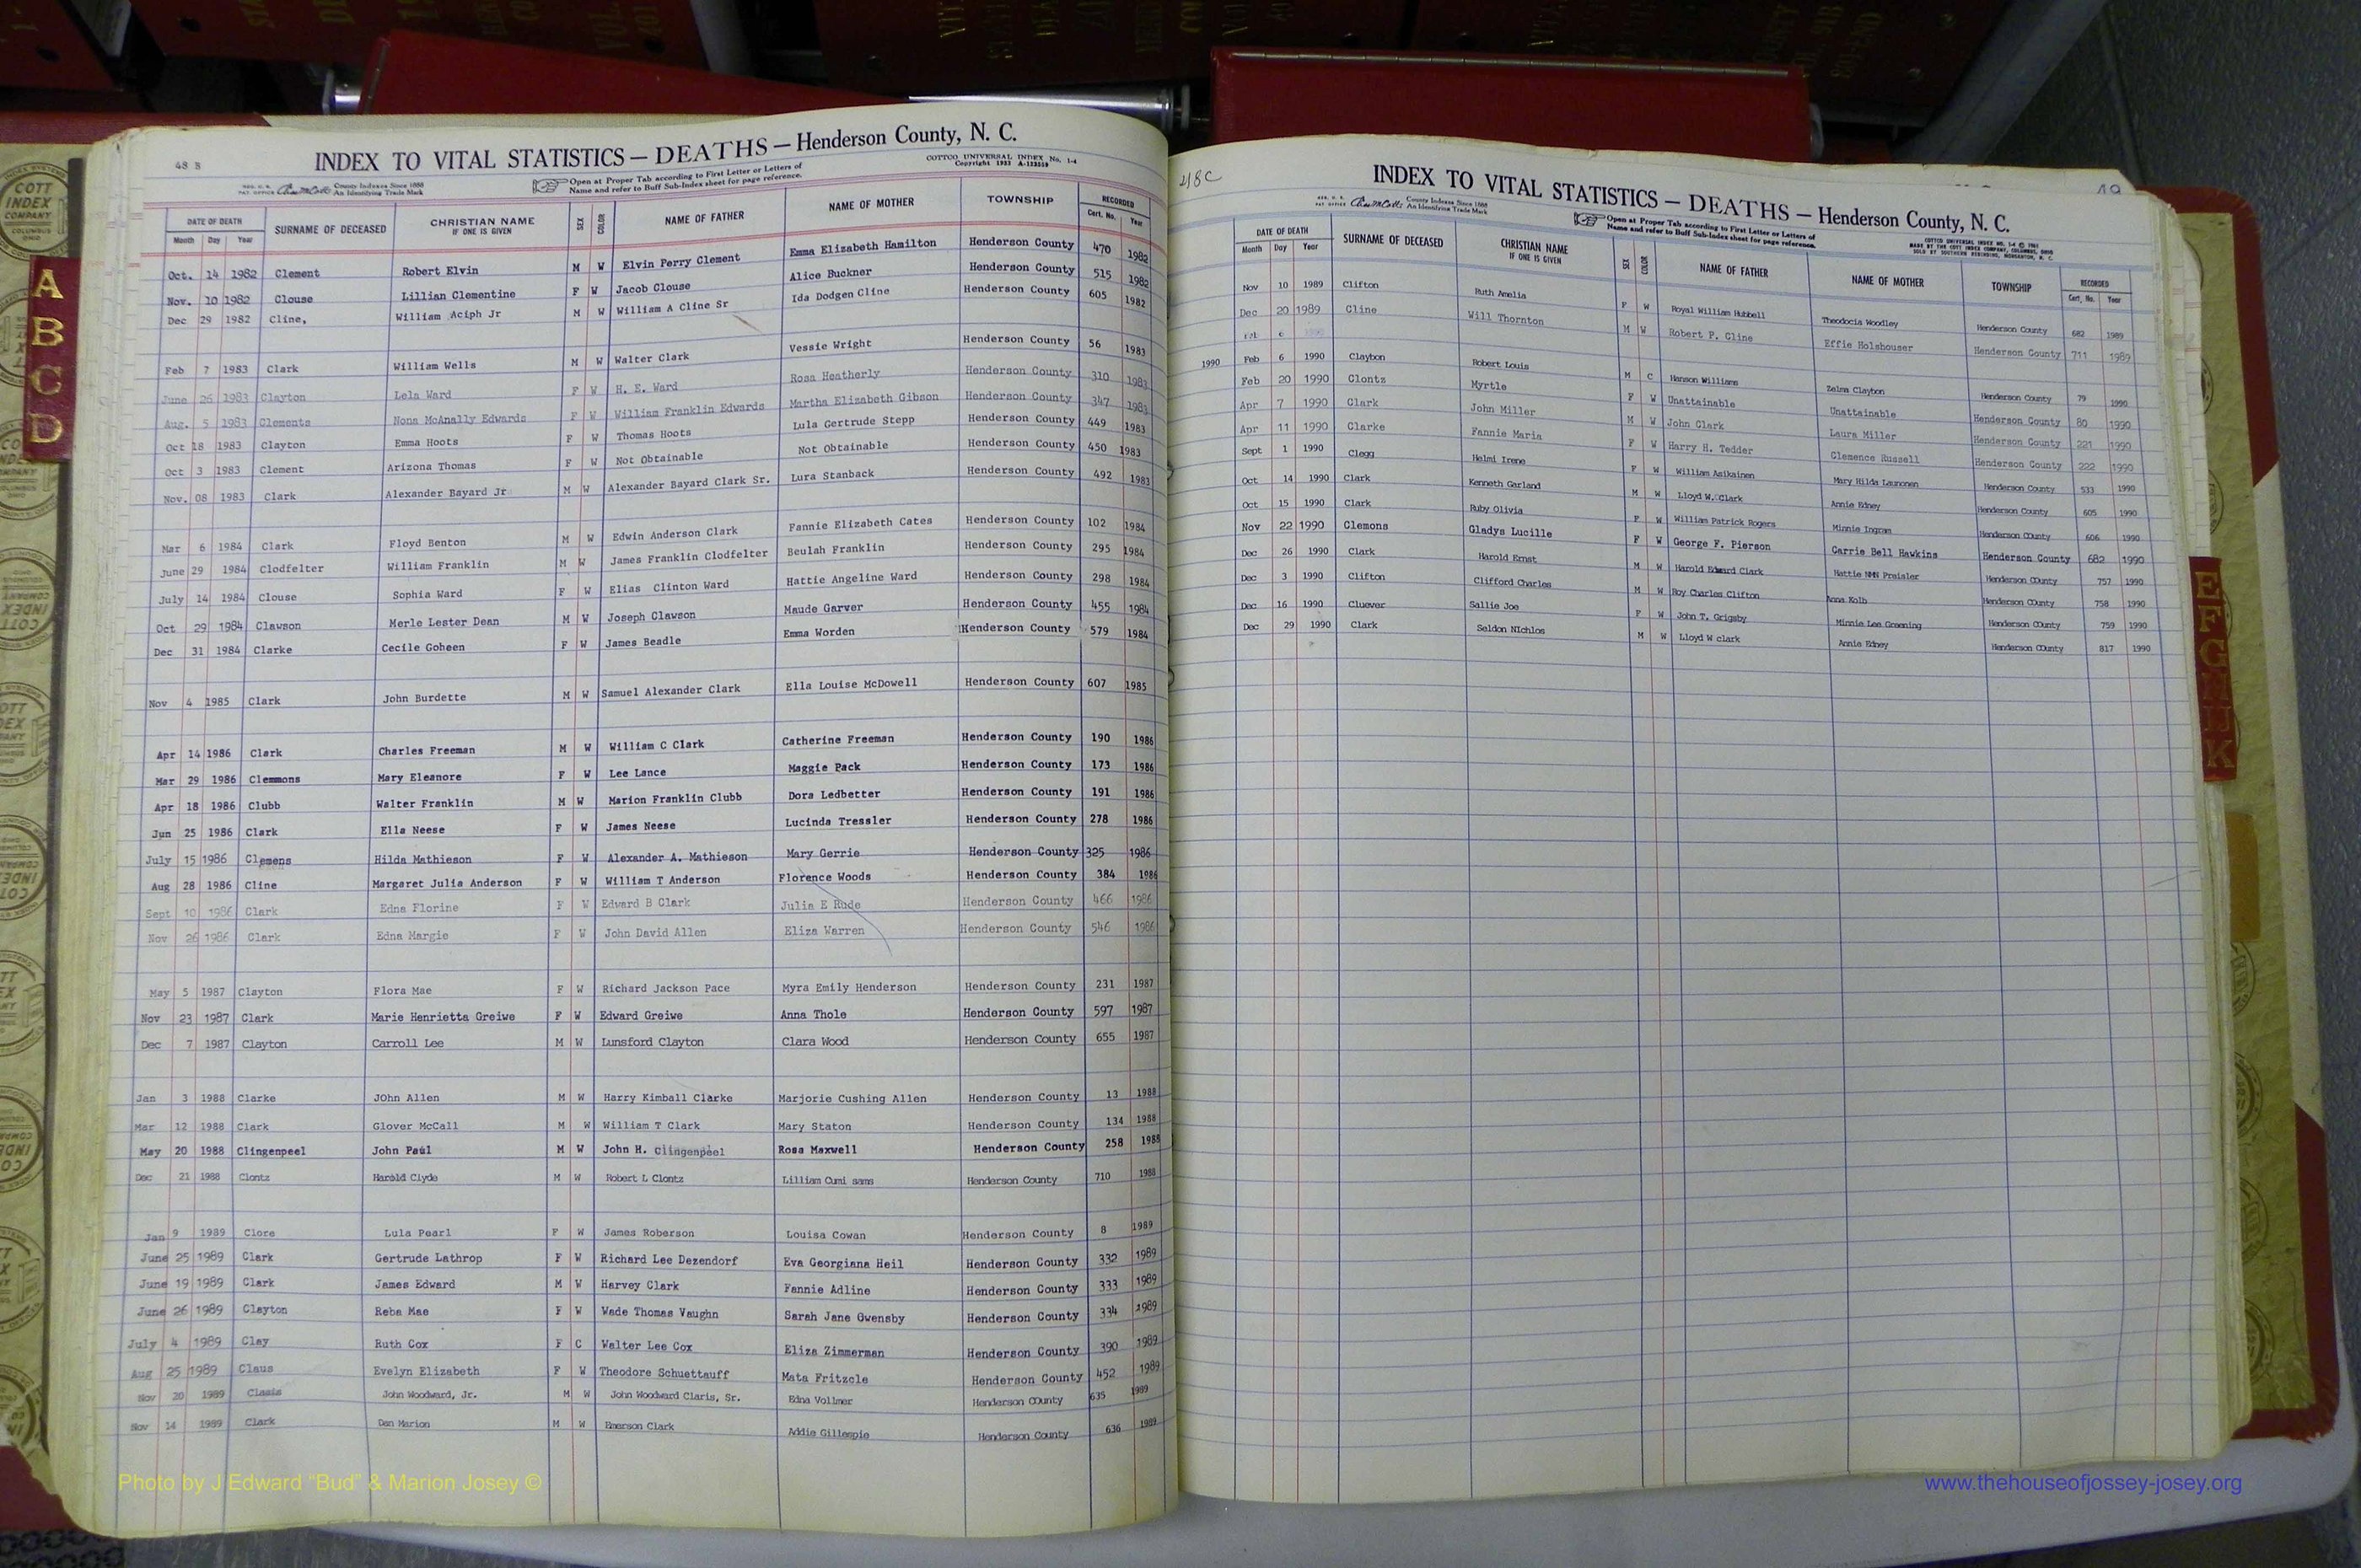 48 B
INDEX TO VITAL STATISTICS — DEATHS — Henderson County, N. C.
COTTCO UNIVERSAL INDEX No. 1-4
Copyright 1933 A-123519
County Indexes Since 1888
An Identifying Trade Mark
Open at Proper Tab according to First Letter or Letters of
Name and refer to Buff Sub-Index sheet for page reference.
DATE OF DEATH SURNAME OF DECEASED CHRISTIAN NAME IF ONE IS GIVEN SEX COLOR NAME OF FATHER NAME OF MOTHER TOWNSHIP RECORDED
Month Day Year Cert. No. Year
Oct. 14 1982 Clement Robert Elvin M W Elvin Perry Clement Emma Elizabeth Hamilton Henderson County 470 1982
Nov. 10 1982 Clouse Lillian Clementine F W Jacob Clouse Alice Buckner Henderson County 515 1982
Dec 29 1982 Cline, William Aciph Jr M W William A Cline Sr Ida Dodgen Cline Henderson County 605 1982
Feb 7 1983 Clark William Wells M W Walter Clark Vessie Wright Henderson County 56 1983
June 26 1983 Clayton Lela Ward F W H. E. Ward Rosa Heatherly Henderson County 310 1983
Aug. 5 1983 Clements Nona McAnally Edwards F W William Franklin Edwards Martha Elizabeth Gibson Henderson County 347 1983
Oct 18 1983 Clayton Emma Hoots F W Thomas Hoots Lula Gertrude Stepp Henderson County 449 1983
Oct 3 1983 Clement Arizona Thomas F W Not Obtainable Not Obtainable Henderson County 450 1983
Nov. 08 1983 Clark Alexander Bayard Jr M W Alexander Bayard Clark Sr. Lura Stanback Henderson County 492 1983
Mar 6 1984 Clark Floyd Benton M W Edwin Anderson Clark Fannie Elizabeth Cates Henderson County 102 1984
June 29 1984 Clodfelter William Franklin M W James Franklin Clodfelter Beulah Franklin Henderson County 295 1984
July 14 1984 Clouse Sophia Ward F W Elias Clinton Ward Hattie Angeline Ward Henderson County 298 1984
Oct 29 1984 Clawson Merle Lester Dean M W Joseph Clawson Maude Garver Henderson County 455 1984
Dec 31 1984 Clarke Cecile Goheen F W James Beadle Emma Worden Henderson County 579 1984
Nov 4 1985 Clark John Burdette M W Samuel Alexander Clark Ella Louise McDowell Henderson County 607 1985
Apr 14 1986 Clark Charles Freeman M W William C Clark Catherine Freeman Henderson County 190 1986
Mar 29 1986 Clemmons Mary Eleanore F W Lee Lance Maggie Pack Henderson County 173 1986
Apr 18 1986 Clubb Walter Franklin M W Marion Franklin Clubb Dora Ledbetter Henderson County 191 1986
Jun 25 1986 Clark Ella Neese F W James Neese Lucinda Tressler Henderson County 278 1986
July 15 1986 Clemens Hilda Mathieson F W Alexander A. Mathieson Mary Gerrie Henderson County 325 1986
Aug 28 1986 Cline Margaret Julia Anderson F W William T Anderson Florence Woods Henderson County 384 1986
Sept 10 1986 Clark Edna Florine F W Edward B Clark Julia E Rude Henderson County 466 1986
Nov 26 1986 Clark Edna Margie F W John David Allen Eliza Warren Henderson County 546 1986
May 5 1987 Clayton Flora Mae F W Richard Jackson Pace Myra Emily Henderson Henderson County 231 1987
Nov 23 1987 Clark Marie Henrietta Greiwe F W Edward Greiwe Anna Thole Henderson County 597 1987
Dec 7 1987 Clayton Carroll Lee M W Lunsford Clayton Clara Wood Henderson County 655 1987
Jan 3 1988 Clarke JOhn Allen M W Harry Kimball Clarke Marjorie Cushing Allen Henderson County 13 1988
Mar 12 1988 Clark Glover McCall M W William T Clark Mary Staton Henderson County 134 1988
May 20 1988 Clingenpeel John Paul M W John H. Clingenpeel Rosa Maxwell Henderson County 258 1988
Dec 21 1988 Clontz Harold Clyde M W Robert L Clontz Lilliam Cumi sams Henderson County 710 1988
Jan 9 1989 Clore Lula Pearl F W James Roberson Louisa Cowan Henderson County 8 1989
June 25 1989 Clark Gertrude Lathrop F W Richard Lee Dezendorf Eva Georgiana Heil Henderson County 332 1989
June 19 1989 Clark James Edward M W Harvey Clark Fannie Adline Henderson County 333 1989
June 26 1989 Clayton Reba Mae F W Wade Thomas Vaughn Sarah Jane Gwensby Henderson County 334 1989
July 4 1989 Clay Ruth Cox F C Walter Lee Cox Eliza Zimmerman Henderson County 390 1989
Aug 25 1989 Claus Evelyn Elizabeth F W Theodore Schuettauff Mata Fritzcle Henderson County 452 1989
Nov 20 1989 John Woodward, Jr. M W John Woodward Claris, Sr. Edna Vollmer Henderson COunty 635 1989
Nov 14 1989 Clark Dan Marion M W Emerson Clark Addie Gillespie Henderson County 636 1989
48C
49
INDEX TO VITAL STATISTICS — DEATHS — Henderson County, N. C.
County Indexes Since 1888
An Identifying Trade Mark
Open at Proper Tab according to First Letter or Letters of
Name and refer to Buff Sub-Index sheet for page reference.
DATE OF DEATH SURNAME OF DECEASED CHRISTIAN NAME IF ONE IS GIVEN SEX COLOR NAME OF FATHER NAME OF MOTHER TOWNSHIP RECORDED
Month Day Year Cert. No. Year
Nov 10 1989 Clifton Ruth Amelia F W Royal William Hubbell Theodocia Woodley Henderson County 682 1989
Dec 20 1989 Cline Will Thornton M W Robert P. Cline Effie Holshouser Henderson County 711 1989
1990 Feb 6 1990 Claybon Robert Louis M C Hanson Williams Zelma Claybon Henderson County 79 1990
Feb 20 1990 Clontz Myrtle F W Unattainable Unattainable Henderson County 80 1990
Apr 7 1990 Clark John Miller M W John Clark Laura Miller Henderson County 221 1990
Apr 11 1990 Clarke Fannie Maria F W Harry H. Tedder Clemence Russell Henderson County 222 1990
Sept 1 1990 Clegg Helmi Irene F W William Asikainen Mary Hilda Launonen Henderson County 533 1990
Oct 14 1990 Clark Kenneth Garland M W Lloyd W. Clark Annie Edney Henderson County 605 1990
Oct 15 1990 Clark Ruby Olivia F W William Patrick Rogers Minnie Ingram Henderson County 606 1990
Nov 22 1990 Clemons Gladys Lucille F W George F. Pierson Carrie Bell Hawkins Henderson County 682 1990
Dec 26 1990 Clark Harold Ernst M W Harold Edward Clark Hattie NMN Preisler Henderson COunty 757 1990
Dec 3 1990 Clifton Clifford Charles M W Roy Charles Clifton Anna Kolb Henderson COunty 758 1990
Dec 16 1990 Cluever Sallie Joe F W John T. Grigsby Minnie Lee Greening Henderson COunty 759 1990
Dec 29 1990 Clark Seldon NIchlos M W Lloyd W clark Annie Edney Henderson COunty 817 1990
A
B
C
D
E
F
G
H
K
COTT
INDEX
COMPANY
COLUMBUS
OHIO
Photo by J Edward “Bud” & Marion Josey ©
www.thehouseofjossey-josey.org